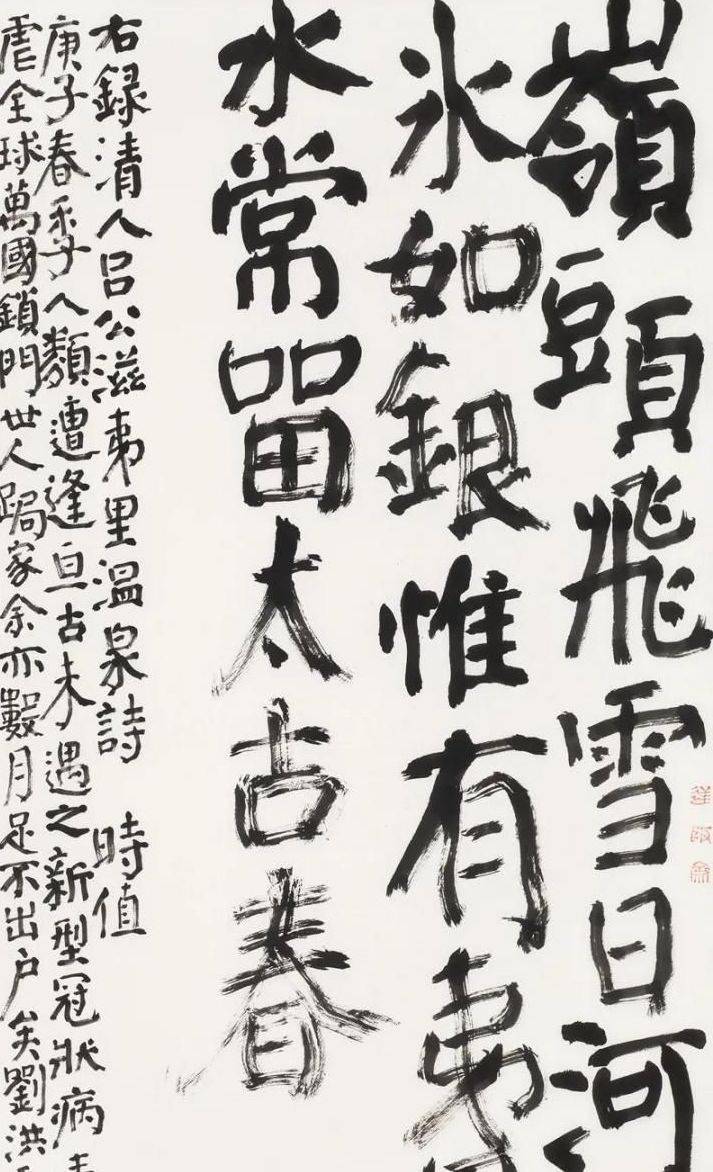 嶺頭飛雪日河
氷如銀惟有夷
水常留太古春
右録清人吕公滋夷里温泉詩 時值
庚子春季人類遭逢亘古未遇之新型冠狀病
虐全球萬國鎖門世人跼家余亦數月足不出户矣劉洪